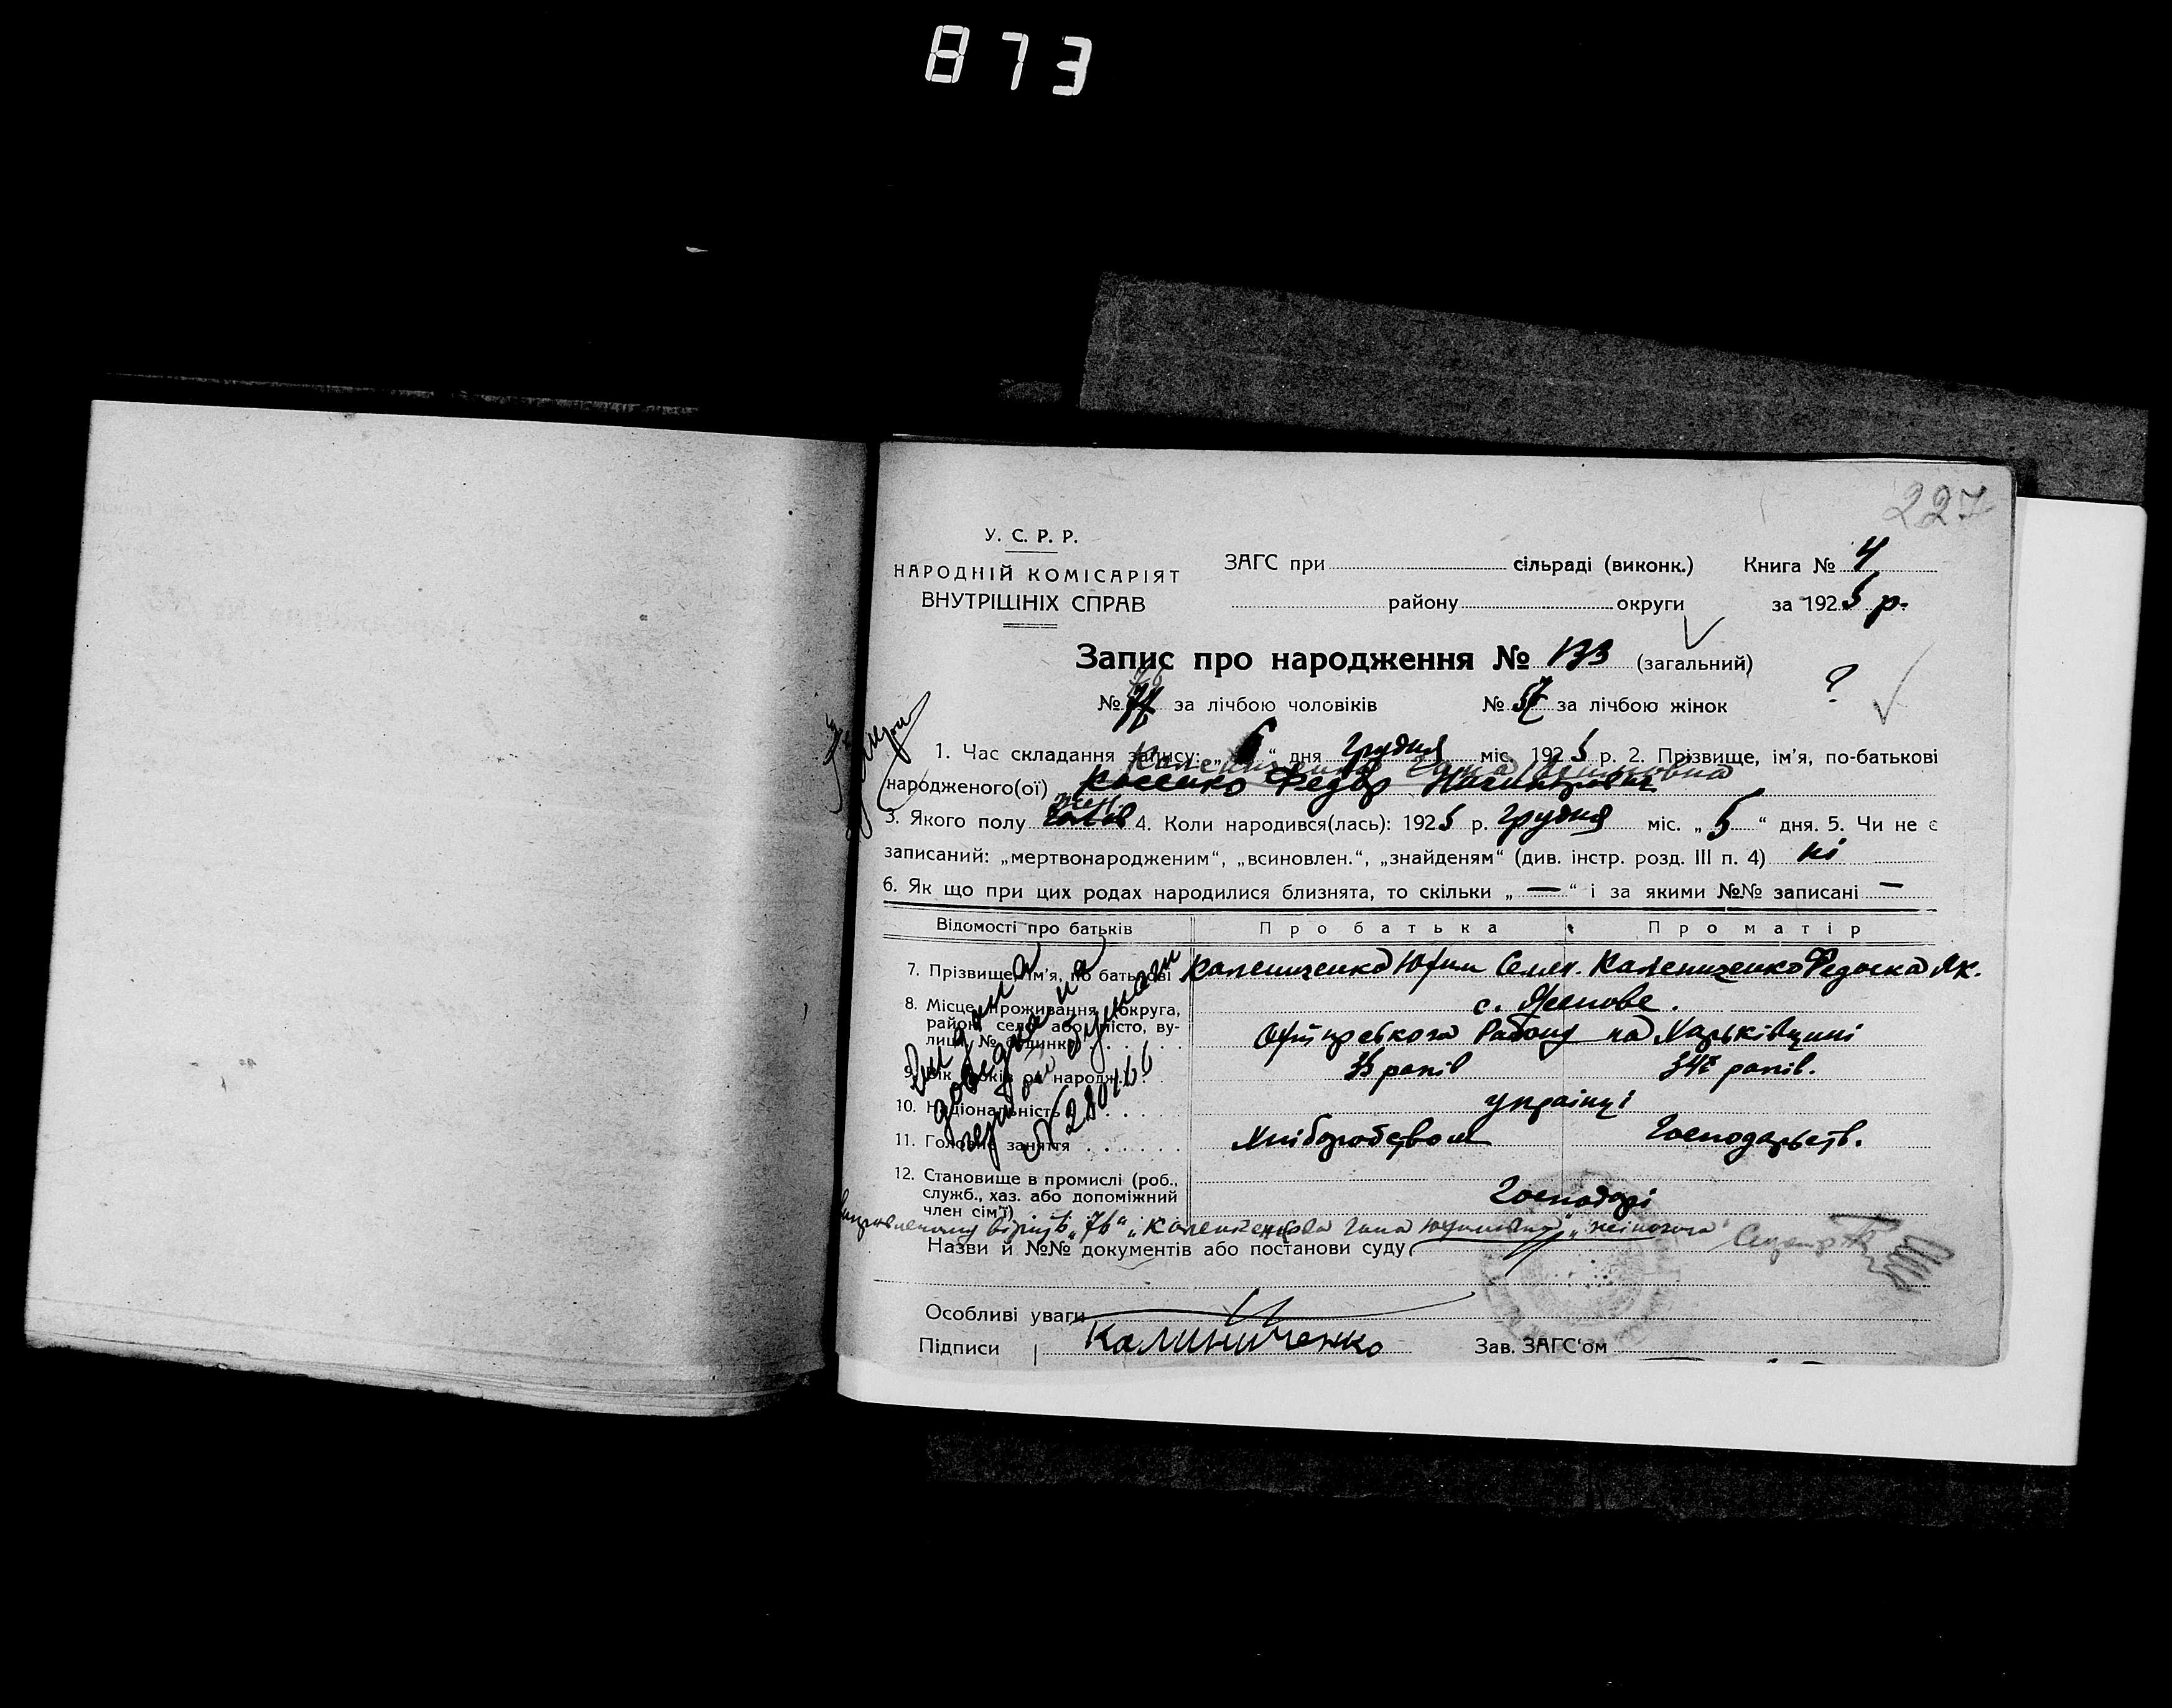 873
227
У. С. Р. Р.
НАРОДНІЙ КОМІСАРІЯТ
ВНУТРІШНІХ СПРАВ
ЗАГС при сільраді (виконк.) Книга № 4
району округи за 1925 р.
Запис про народження № 133 (загальний)
№ за лічбою чоловіків № 57 за лічбою жінок ?
1. Час складання запису: „ 6 “ дня грудня міс. 1925 р. 2. Прізвище, ім'я, по-батькові
народженого(ої) Косенко Федор
жен.
3. Якого полу 4. Коли народився(лась): 1925 р. грудня міс. „ 5 “ дня. 5. Чи не є
записаний: „мертвонародженим“, „всиновлен.“, „знайденям“ (див. інстр. розд. III п. 4) ні
6. Як що при цих родах народилися близнята, то скільки „ — “ і за якими №№ записані —
Відомості про батьків Про батька Про матір
7. Прізвище, ім'я, по батькові Калениченко Юхим Семен. Калениченко Федоска Як.
8. Місце проживання (округа, район, село або місто, вулиця, № будинку) с. Ясенове.
Охтирського Району на Харьківщині
9. Вік (років од народж.) 35 років 34 років.
10. Національність українці
11. Головне заняття Хліборобством Господарств.
12. Становище в промислі (роб., служб., хаз. або допоміжний член сім'ї) Господарі
Видана
довідка на
гербовій бумаги
№ 280466
„76“ „Калениченкова Гана Юхимівна“ „жіночого“
Назви й №№ документів або постанови суду
Особливі уваги
Підписи Калиниченко Зав. ЗАГС'ом